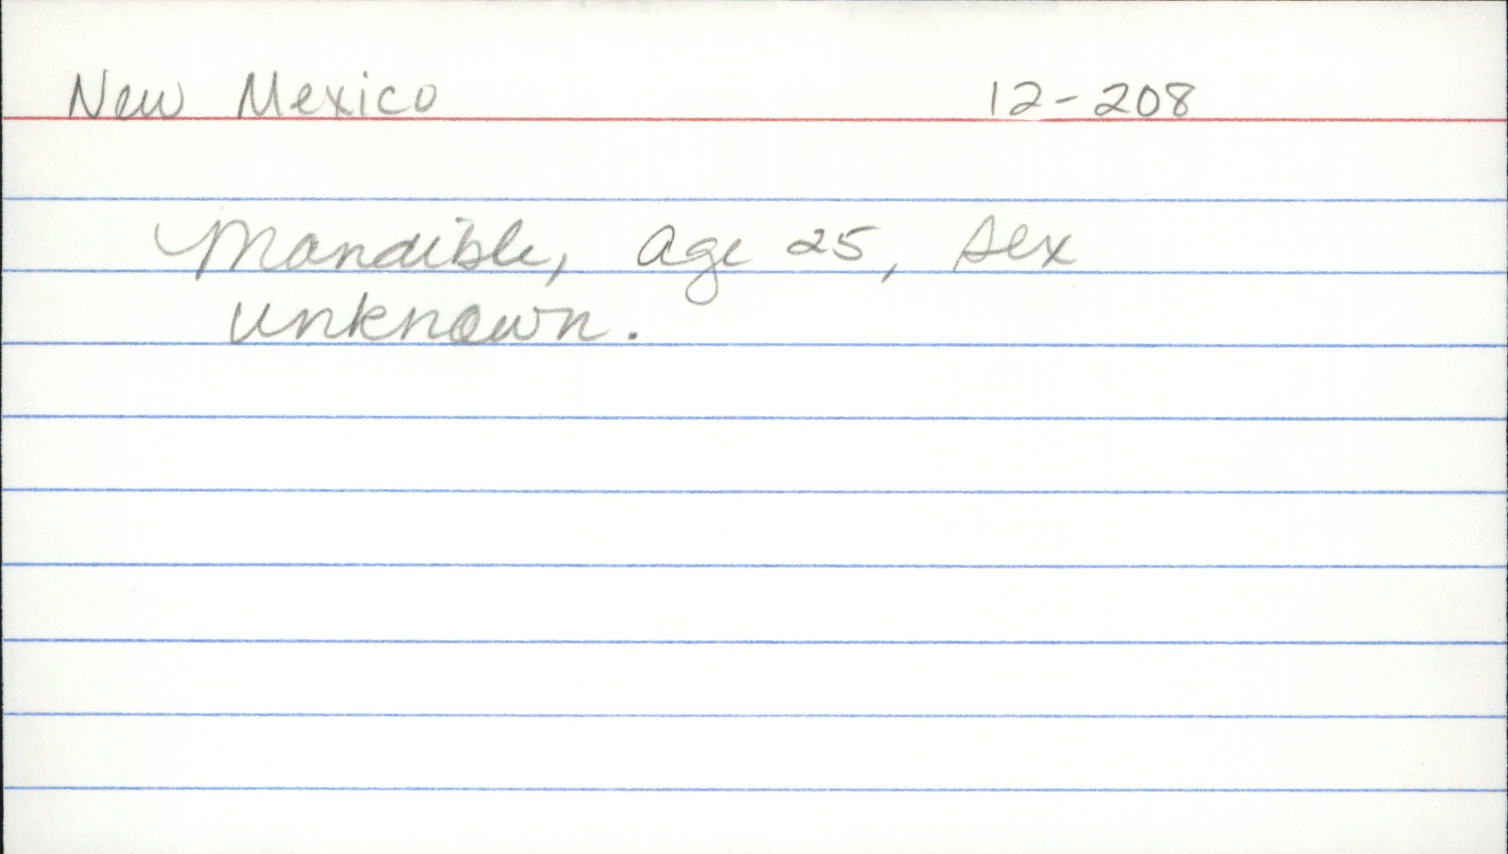 New Mexico 12-208
Mandible, age 25, sex
unknown.